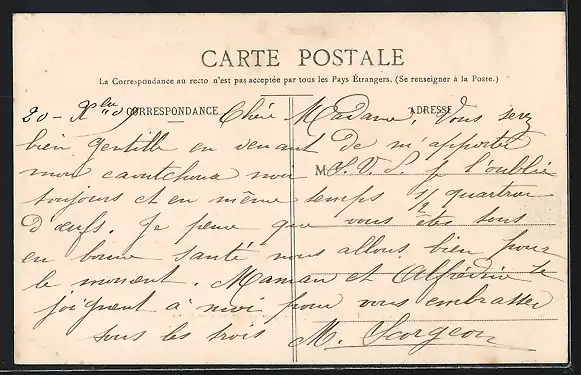 CARTE POSTALE
La Correspondance au recto n'est pas acceptée par tous les Pays Étrangers. (Se renseigner à la Poste.)
CORRESPONDANCE ADRESSE
20 - Xbre 09 Chère Madame, Vous serez
bien gentille en venant de m'apporter
M
mon caoutchouc noir S. V. P. je l'oublie
toujours et en même temps 1/2 quartron
d'œufs. Je pense que vous êtes tous
en bonne santé nous allons bien pour
le moment. Maman et Alfrédine se
joignent à moi pour vous embrasser
tous les trois M.